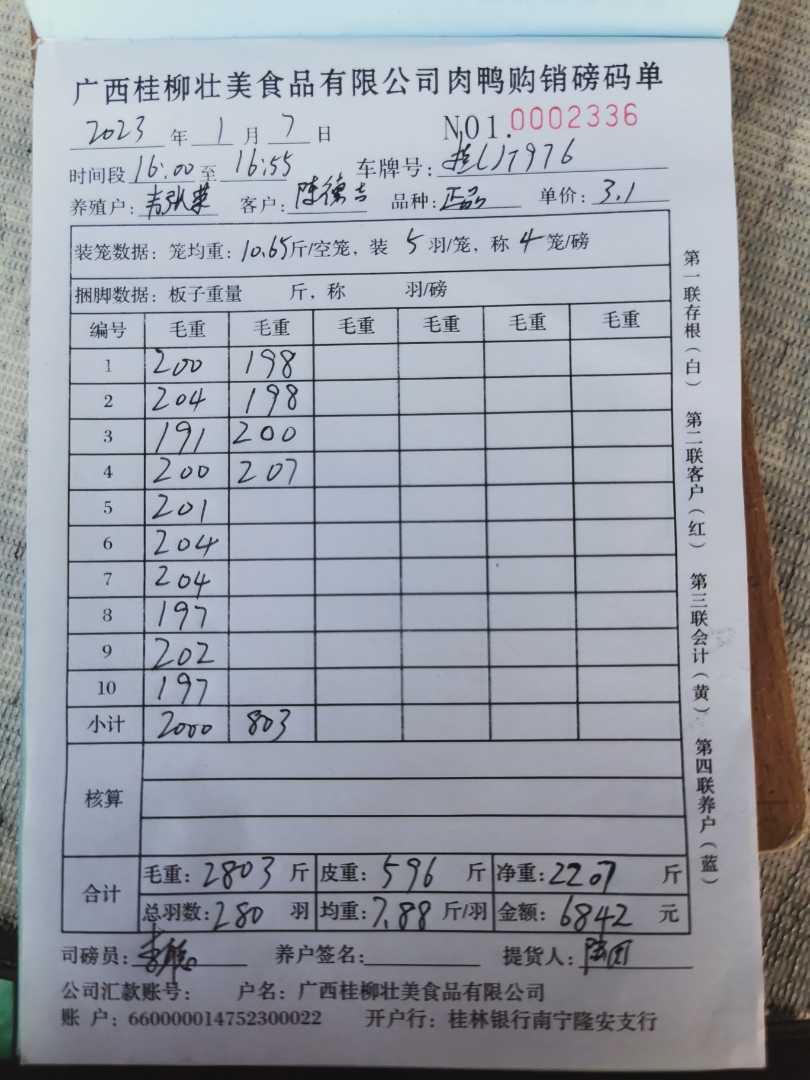 广西桂柳壮美食品有限公司肉鸭购销磅码单
2023 年 1 月 7 日 NO1. 0002336
时间段 16:00 至 16:55 车牌号:
养殖户: 客户: 陈德吉 品种: 正品 单价: 3.1
装笼数据: 笼均重: 10.65 斤/空笼, 装 5 羽/笼, 称 4 笼/磅
捆脚数据: 板子重量 斤, 称 羽/磅
编号 毛重 毛重 毛重 毛重 毛重 毛重
1 200 198
2 204 198
3 191 200
4 200 207
5 201
6 204
7 204
8 197
9 202
10 197
小计 2000 803
核算
合计 毛重: 2803 斤 皮重: 596 斤 净重: 2207 斤
总羽数: 280 羽 均重: 7.88 斤/羽 金额: 6842 元
司磅员: 养户签名: 提货人:
公司汇款账号: 户名: 广西桂柳壮美食品有限公司
账 户: 660000014752300022 开户行: 桂林银行南宁隆安支行
第一联存根(白) 第二联客户(红) 第三联会计(黄) 第四联养户(蓝)